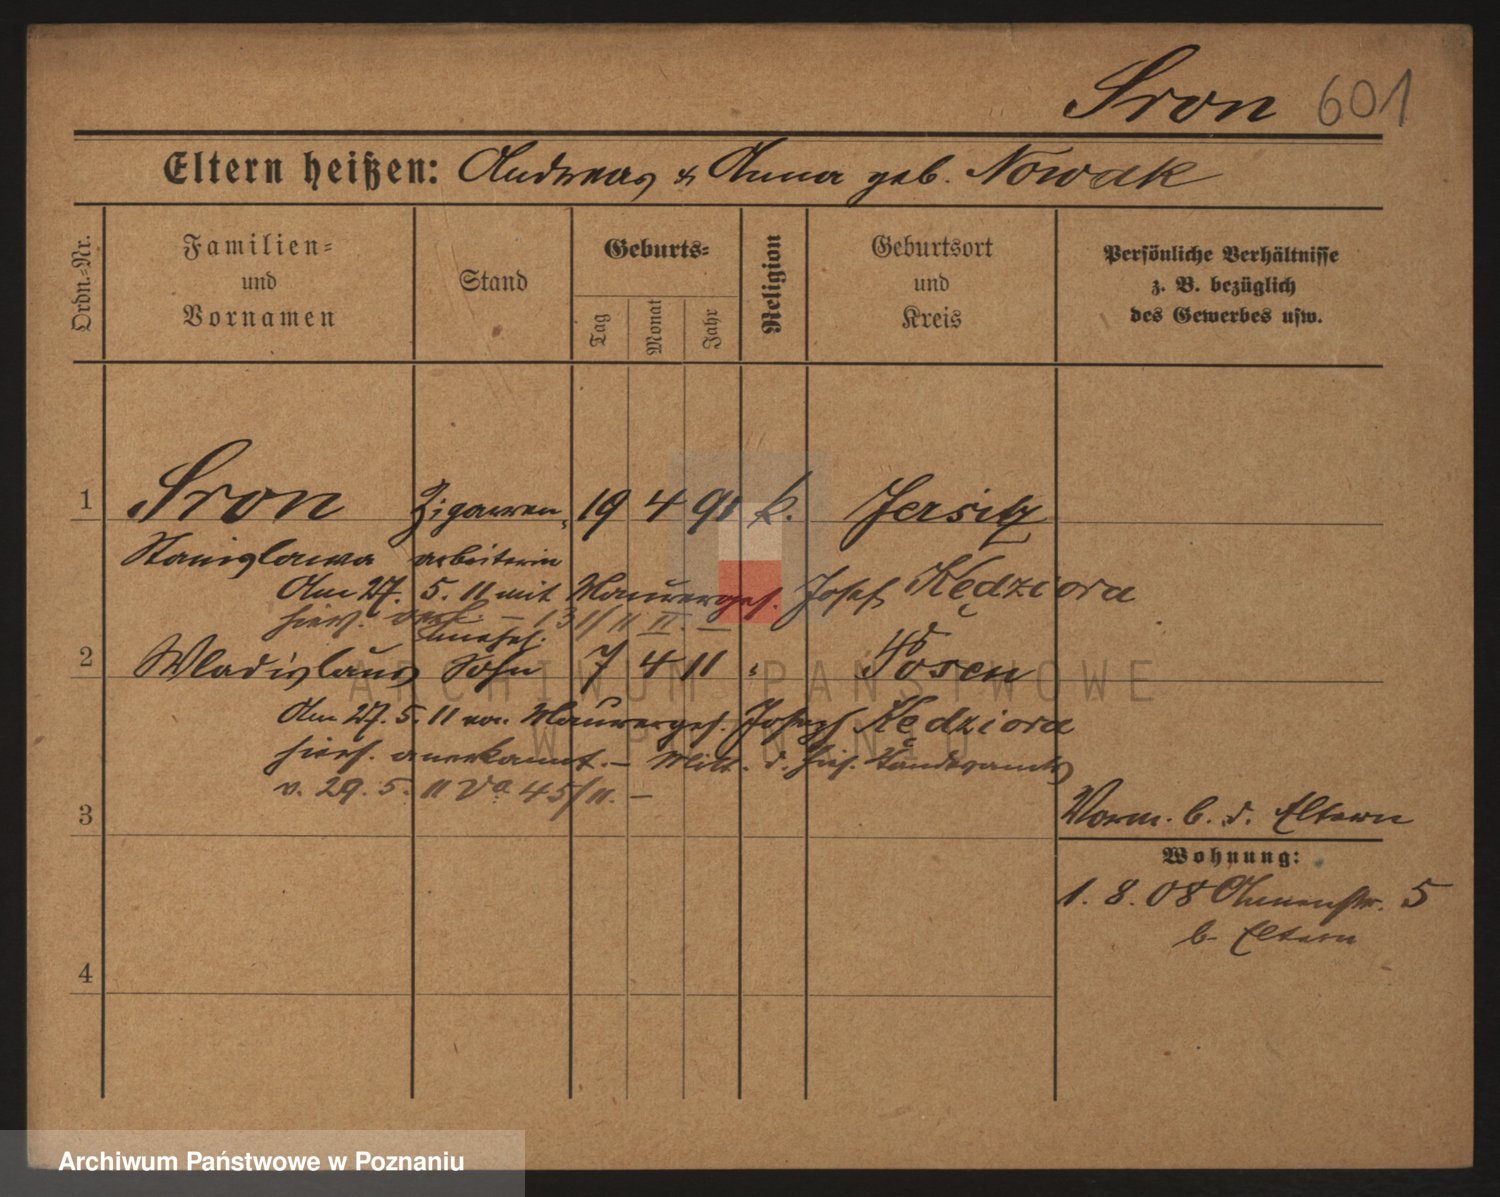 Sron 601
Eltern heißen: Andreas & Anna geb. Nowak
Ordn.-Nr.
Familien-
und
Vornamen
Stand
Geburts-
Tag
Monat
Jahr
Religion
Geburtsort
und
Kreis
Persönliche Verhältnisse
z. B. bezüglich
des Gewerbes usw.
1 Sron Zigarren- 19 4 91 k. Jersitz
Stanislawa arbeiterin
Am 27. 5. 11 mit Maurerges. Josef Kędziora
hiers. verh. – 131/11 II. –
unehel.
2 Wladislaus Sohn 7 4 11 " Posen
Am 27. 5. 11 von Maurerges. Joseph Kędziora
hiers. anerkannt. – Mitt. d. hies. Standesamts
v. 29. 5. 11 Va 45/11. –
3
Vorm. b. d. Eltern
Wohnung:
1. 8. 08 5
b. Eltern
4
ARCHIWUM PAŃSTWOWE
W POZNANIU
Archiwum Państwowe w Poznaniu